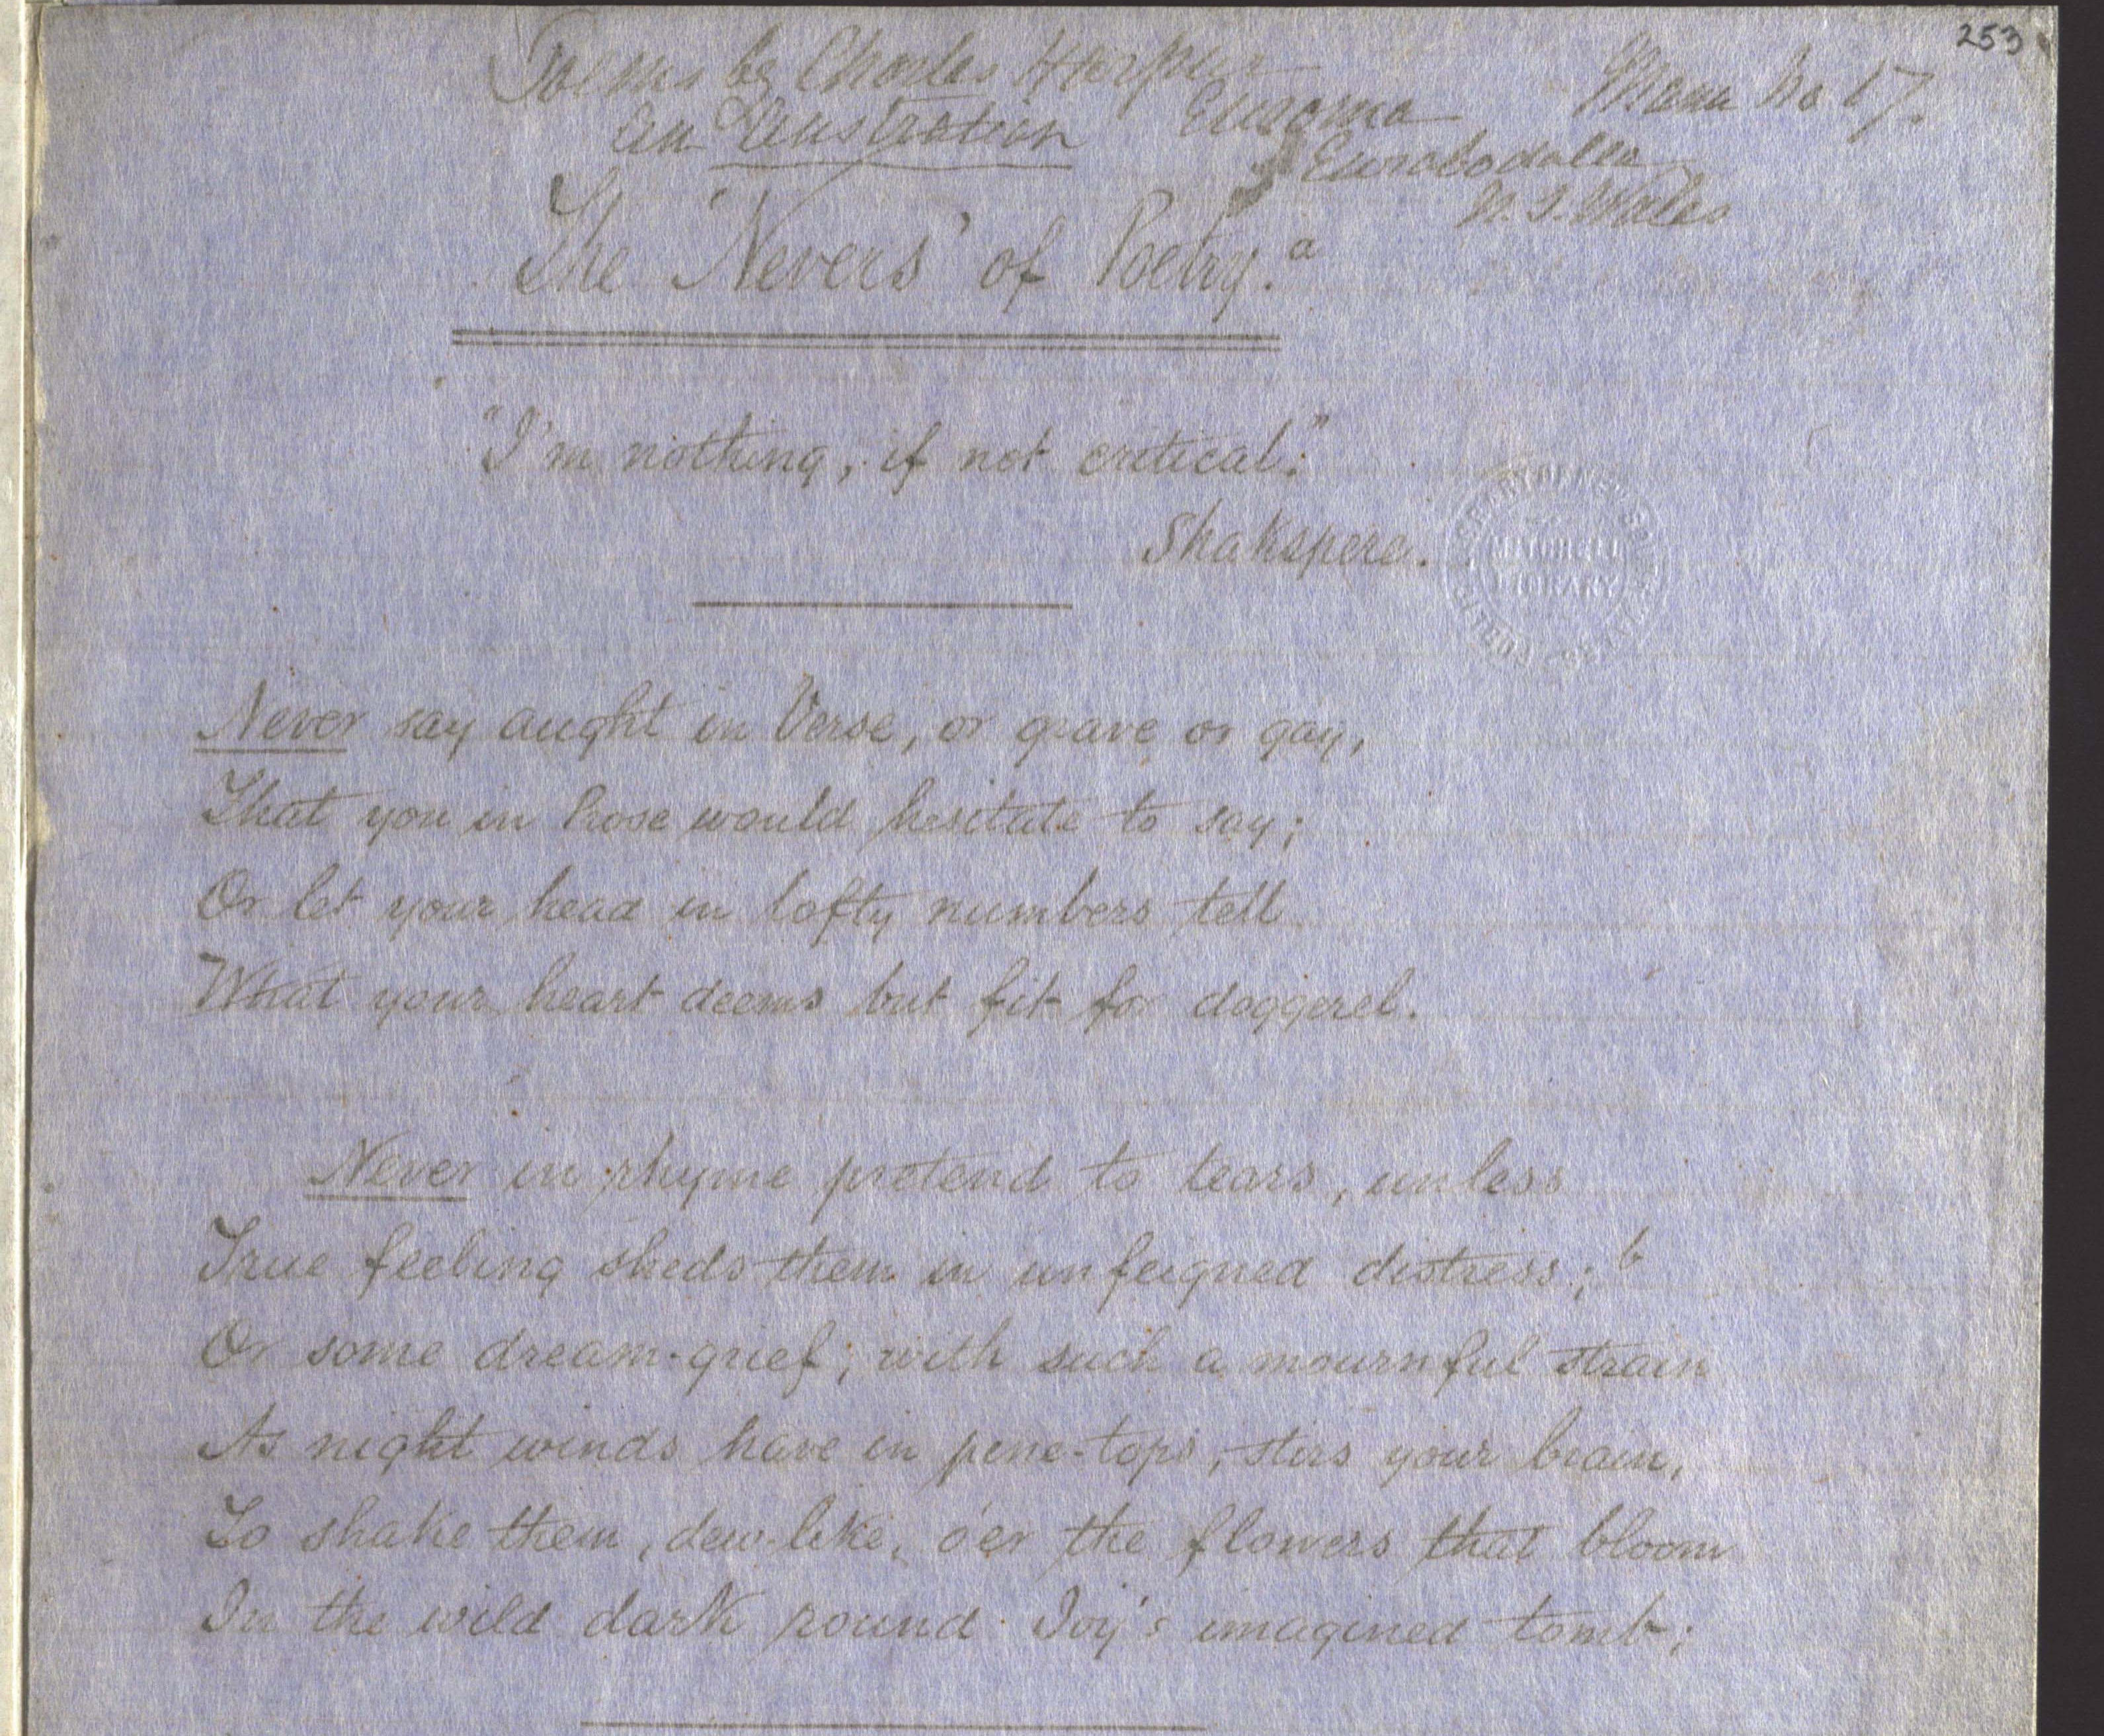 253
Poems by Charles Harpur
an Australian
Euroma
Manu No 17.
Eurobodalla
N. S. Wales
The 'Nevers' of Poetry.a
"I'm nothing, if not critical."
Shakspere.
PUBLIC LIBRARY OF NEW SOUTH WALES
MITCHELL
LIBRARY
Never say aught in Verse, or grave or gay,
That you in Prose would hesitate to say;
Or let your head in lofty numbers tell
What your heart deems but fit for doggerel.
Never in rhyme pretend to tears, unless
True feeling sheds them in unfeigned distress; b
Or some dream-grief; with such a mournful strain
As night winds have in pine-tops, stirs your brain,
To shake them, dew-like, o'er the flowers that bloom
In the wild dark round Joy's imagined tomb;